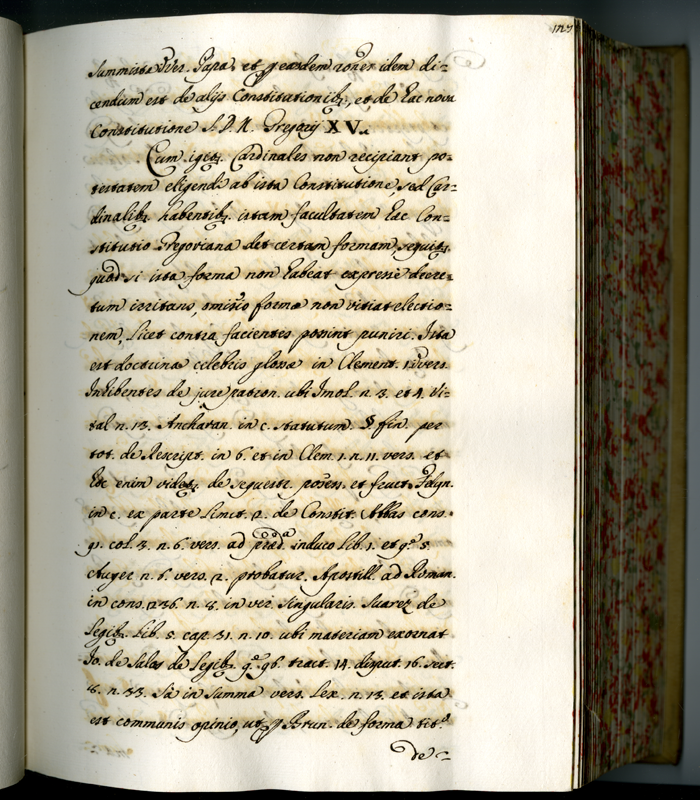 Summista Vers. Papa, et p eandem ròner idem di=
cendum est de alijs Constitutionibz, et de hac nova
Constitutione S. D. N. Gregorij XV.
Cum igitz Cardinales non recipiant po=
testatem eligendi ab ista Constitutione, sed Car=
dinalibz habentibz istam facultatem haec Con=
stitutio Gregoriana det certam formam, sequitz
quod si ista forma non habeat expresse decre=
tum irritans, omissio formæ non vitiat electio=
nem, licet contra facientes possint puniri. Ista
est doctrina celebris glossæ in Clement. 1. vers.
Inhibentes de jure patron. ubi Imol. n. 3. et 4. Vi=
tal n. 13. Ancharan. in c. statutum. § fin. per
tot. de Rescript. in 6. et in Clem. 1. n. 11. vers. et
hæc enim videtz de sequestr. possess. et fruct. Felyn.
in c. ex parte limit. 2. de Constit. Abbas cons.
91. col. 3. n. 6. vers. ad præd.ª induco lib. 1. et q.º 5.
Auger n. 6. vers. 2. probatur. Apostill. ad Roman.
in cons. 236. n. 8. in ver. singularis. Suarez de
Legibz lib. 5. cap. 31. n. 10. ubi materiam exornat
Io. de Salas de Legibz q.º 96. tract. 14. disput. 16. sect.
8. n. 33. Sà in Summa vers. Lex. n. 13. et ista
est communis opinio, ut p Brun. de forma tit.º
de =